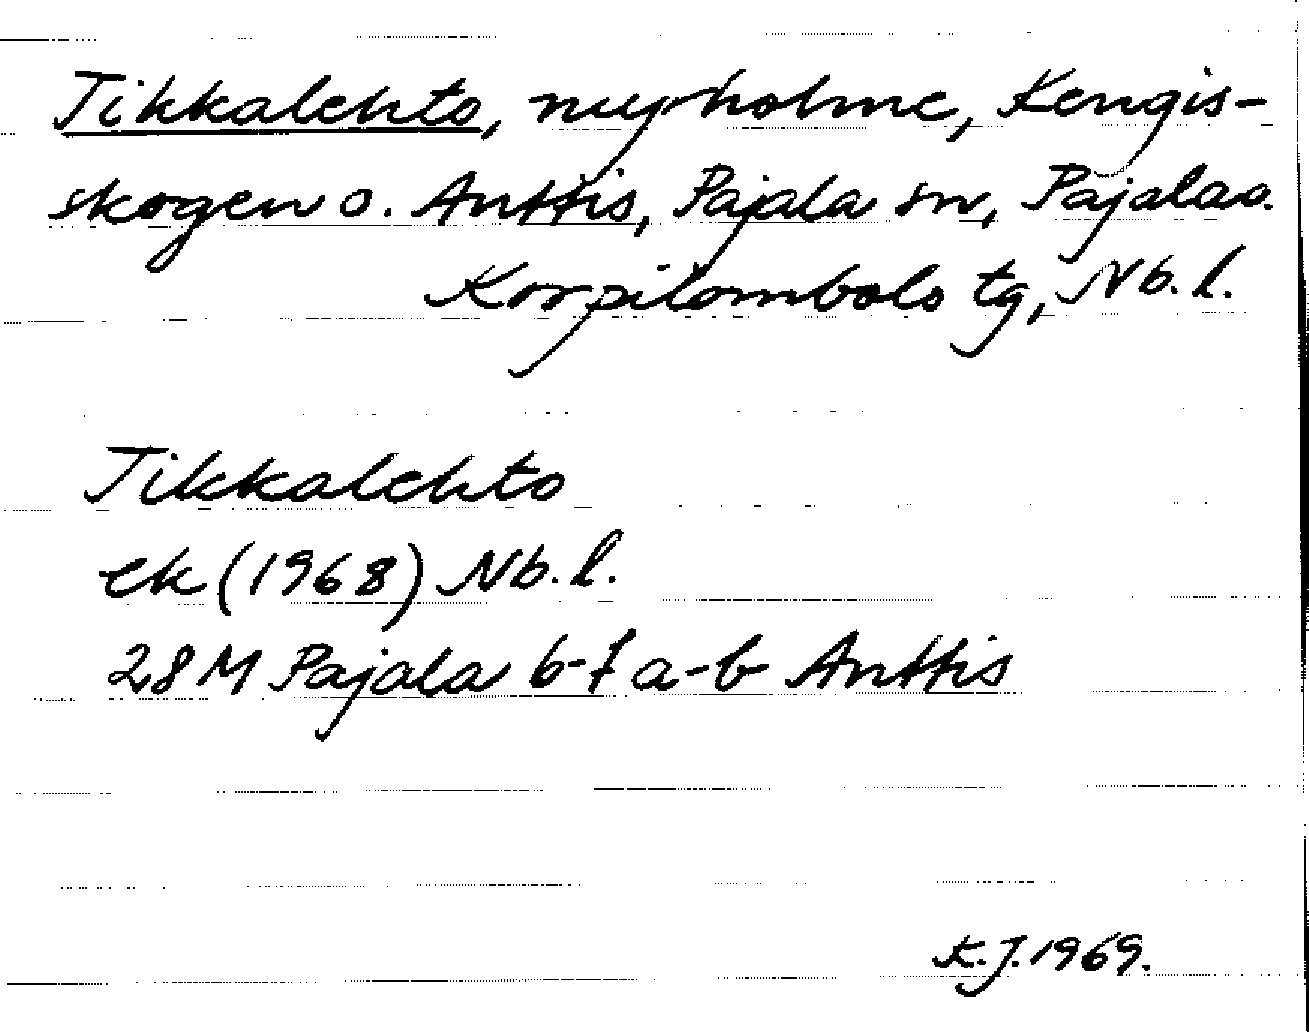 Tikkalehto, myrholme, Kengis-
skogen o. Anttis, Pajala sn, Pajala o.
Korpilombolo tg, Nb. l.
Tikkalehto
ek (1968) Nb. l.
28 M Pajala 6-7 a-b Anttis
K.J. 1969.